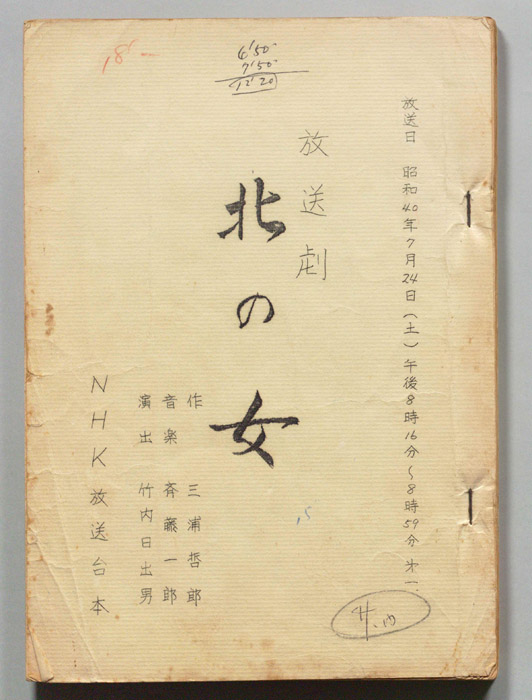 放送日 昭和40年7月24日（土）午後8時16分～8時59分 第一
放送劇
北の女
作 三浦哲郎
音楽 斉藤一郎
演出 竹内日出男
NHK放送台本
6'50"
7'50"
12'20